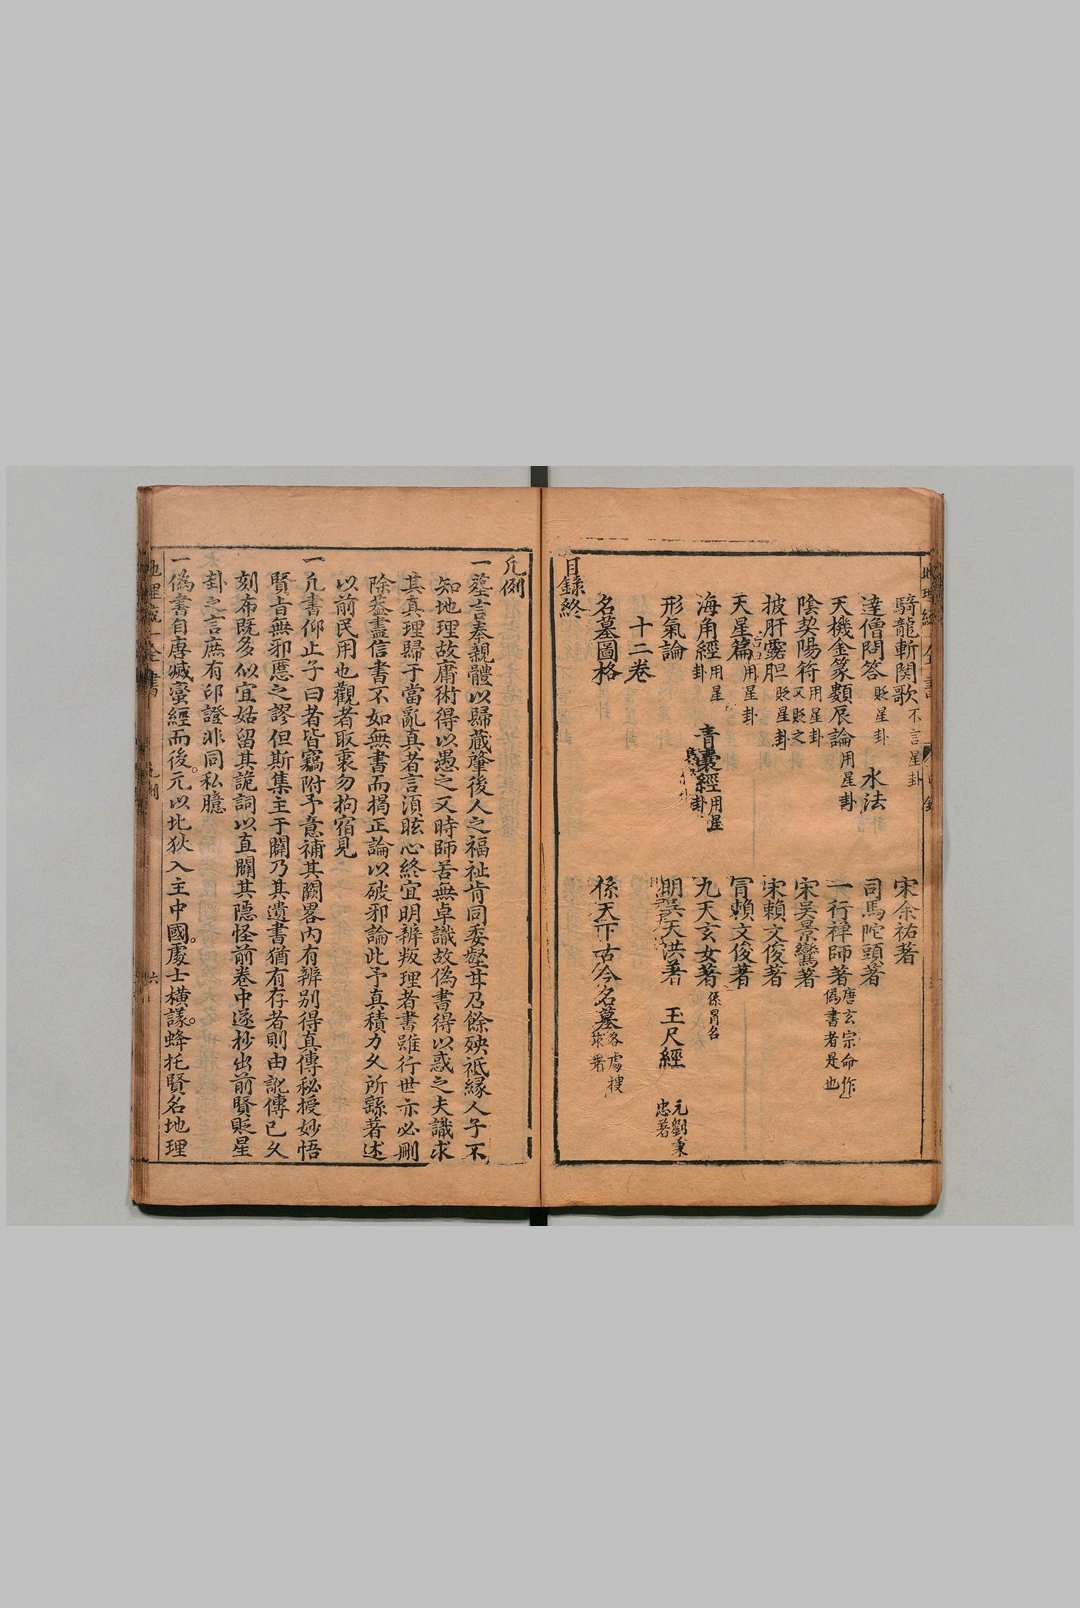 騎龍斬関歌不言星卦 宋余祐著
達僧問答貶星卦 水法 司馬陀頭著
天機金篆類辰論用星卦 一行禅師著唐玄宗命作偽書者是也
陰契陽符用星卦又貶之 宋吴景鸞著
披肝露胆貶星卦 宋賴文俊著
天星篇用星卦 冐賴文俊著
海角經用星卦 青囊經用星卦 九天玄女著係冐名
形氣論 明 天洪著 玉尺經 元劉秉忠著
十二卷
名墓圖格 係天下古今名墓各處搜
目録終
凡例
一葬言奉親體以歸蔵肇後人之福祉肯同委壑甘乃餘殃祗縁人子不
知地理故庸術得以愚之又時師苦無卓識故偽書得以惑之夫識求
其真理歸于當亂真者言湏眩心終宜明辨叛理者書雖行世亦必刪
除盖盡信書不如無書而揭正論以破邪論此予真積力久所繇著述
以前民用也觀者取裏勿拘宿見
一凢書仰止子曰者皆竊附予意補其闕畧内有辨别得真傳秘授妙悟
賢旨無邪慝之謬但斯集主于闢乃其遺書猶有存者則由訛傳已久
刻布既多似宜姑留其詭詞以直闢其隱怪前卷中遂抄出前賢貶星
卦之言庶有印證非同私臆
一偽書自唐滅蠻經而後元以北狄入主中國處士横議蜂托賢名地理